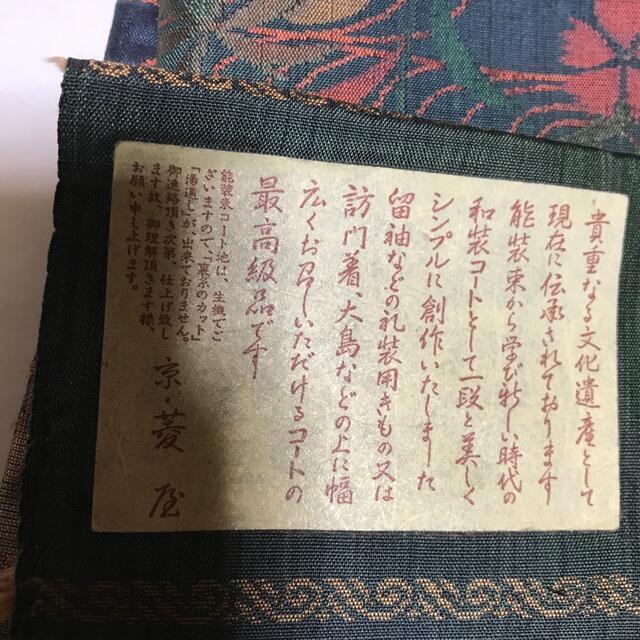 貴重なる文化遺産として
現在に伝承されております
能装束から学び新しい時代の
和装コートとして一段と美しく
シンプルに創作いたしました
留袖などの礼装用きもの又は
訪門着、大島などの上に幅
広くお召しいただけるコートの
最高級品です
能装束コート地は、生織でご
ざいますので、「裏糸のカット」
「湯通し」が、出来ておりません。
御連絡頂き次第、仕上げ致し
ます故、御理解頂きます様、
お願い申し上げます。
京・菱屋